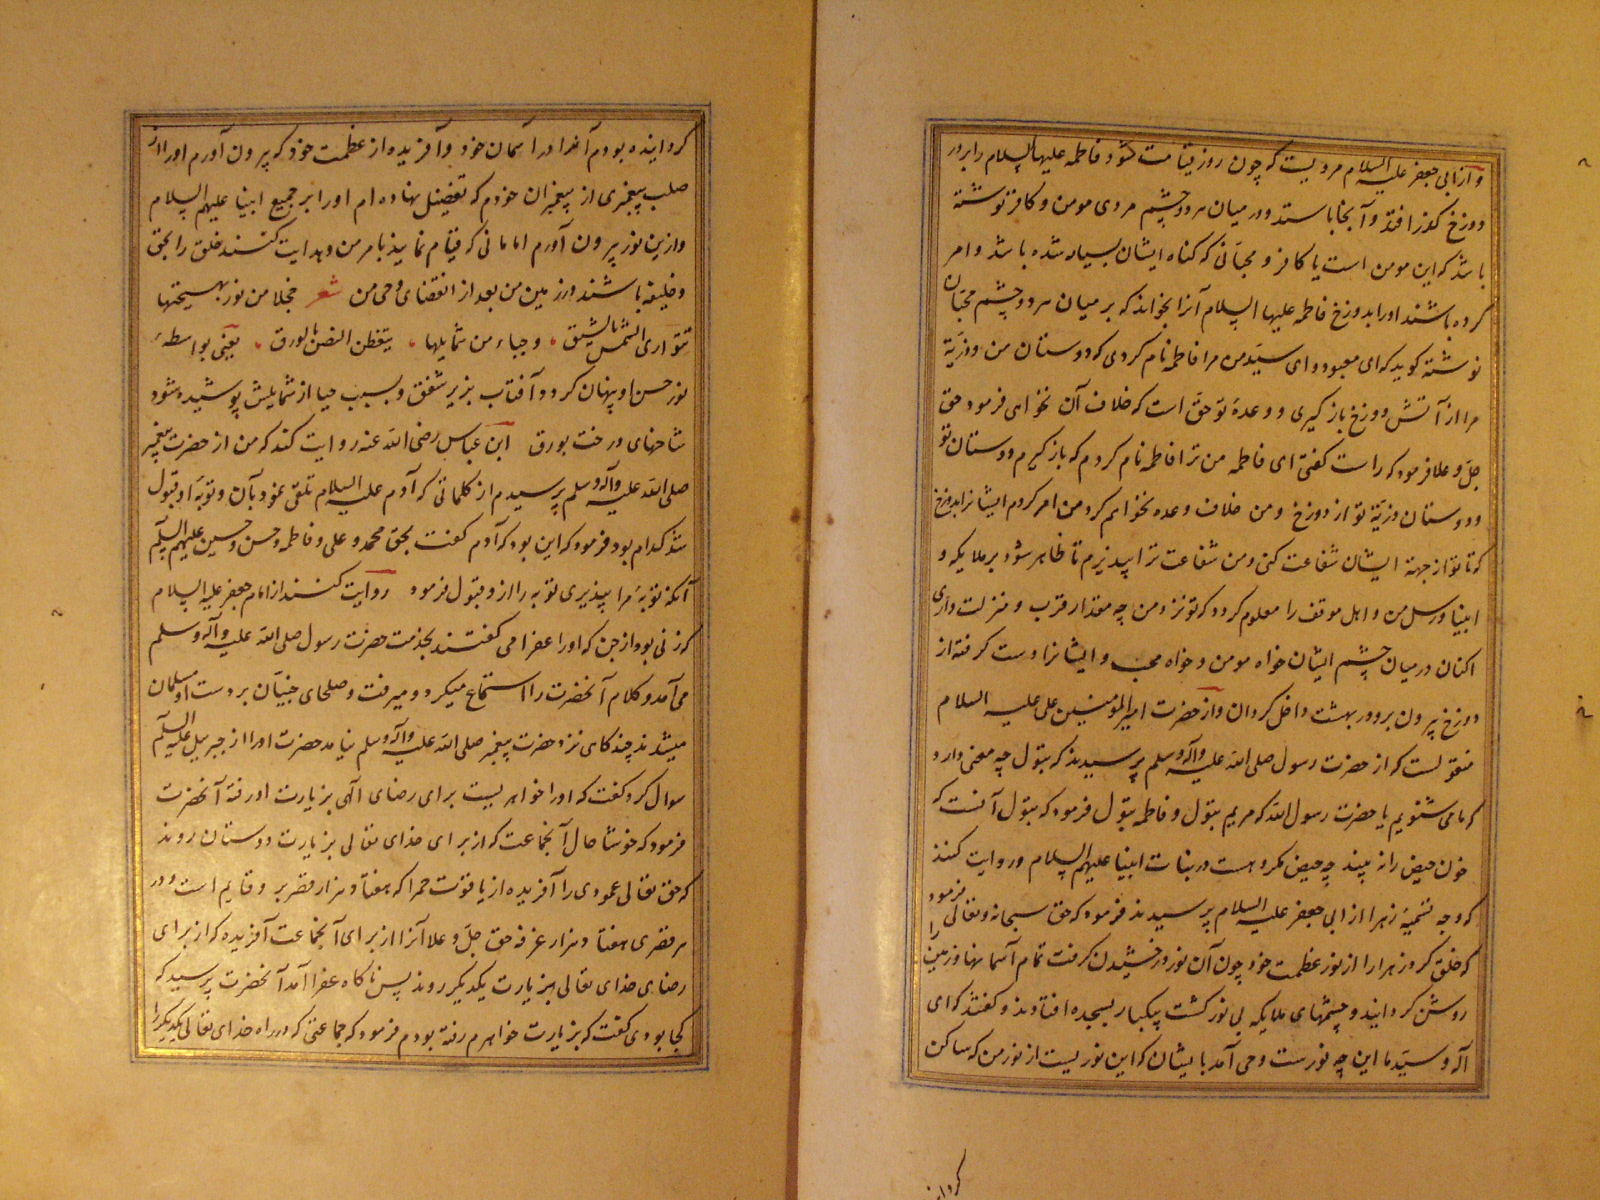 و از ابی جعفر علیه السلام مرویست که چون روز قیامت شود فاطمه علیها السلام را بر در
دوزخ گذر افتد و آنجا باستد و در میان هر دو چشم مردی مومن و کافر نوشته
باشد که این مومن است یا کافر و محبانی که گناه ایشان بسیار شده باشد و امر
کرده باشند او را بدوزخ فاطمه علیها السلام آنرا بخواند که بر میان هر دو چشم محبان
نوشته گوید که ای معبود و ای سید من مرا فاطمه نام کردی که دوستان من و ذریة
مرا از آتش دوزخ باز گیری و وعدۀ تو حق است که خلاف آن نخواهی فرمود حق
جل و علا فرمود که راست گفتی ای فاطمه من ترا فاطمه نام کردم که باز گیرم دوستان تو
و دوستان ذریة تو از دوزخ و من خلاف وعده نخواهم کرد من امر کردم ایشانرا بدوزخ
که تا تو از جهة ایشان شفاعت کنی و من شفاعت ترا بپذیرم تا ظاهر شود بر ملایکه و
انبیا و رسل من و اهل موقف را معلوم گردد که تو نزد من چه مقدار قرب و منزلت داری
اکنان در میان چشم ایشان خواه مومن و خواه محب و ایشانرا دست گرفته از
دوزخ بیرون بر و در بهشت داخل گردان و از حضرت امیر المؤمنین علی علیه السلام
منقولست که از حضرت رسول صلی الله علیه وآله وسلم پرسیدند که بتول چه معنی دارد
که ما می شنویم یا حضرت رسول الله که مریم بتول و فاطمه بتول فرمود که بتول آنست که
خون حیض را نه بیند چه حیض مکروهست در بنات انبیا علیهم السلام و روایت کنند
که وجه تسمیۀ زهرا از ابی جعفر علیه السلام پرسیدند فرمود که حق سبحانه و تعالی فرمود
که خلق کرد زهرا را از نور عظمت خود چون آن نور درخشیدن گرفت تمام آسمانها و زمین را
روشن گردانید و چشمهای ملایکه بی نور گشت پیکبار بسجده افتادند و گفتند که ای
اله و سید ما این چه نورست وحی آمد بایشان که این نوریست از نور من که ساکن
گردانیده
گردانیده بودم آنرا در آسمان خود و آفریده از عظمت خود که بیرون آورم او را از
صلب پیغمبری از پیغمبران خودم که تفضیل نهاده ام او را بر جمیع انبیا علیهم السلام
و ازین نور بیرون آورم امامانی که قیام نمایند بامر من و هدایت کنند خلق را بحق
و خلیفه باشند در زمین من بعد از انقضای وحی من شعر خجلا من نور بهجتها
تتواری الشمس بالشفق و حیاء من شمایلها یتغطی الغصن بالورق یعنی بواسطۀ
نور حسن او پنهان گردد آفتاب بزیر شفق و بسبب حیا از شمایلش پوشیده شود
شاخهای درخت بورق ابن عباس رضی الله عنه روایت کند که من از حضرت پیغمبر
صلی الله علیه وآله وسلم پرسیدم از کلماتی که آدم علیه السلام تلقی نمود بآن و توبۀ او قبول
شد کدام بود فرمود که این بود که آدم گفت بحق محمد و علی و فاطمه و حسن و حسین علیهم السلام
آنکه توبۀ مرا بپذیری توبه را ازو قبول فرمود روایت کنند از امام جعفر علیه السلام
که زنی بود از جن که او را عفرا می گفتند بخدمت حضرت رسول صلی الله علیه وآله وسلم
می آمد و کلام آنحضرت را استماع میکرد و میرفت و صلحای جنیان بر دست او مسلمان
میشدند چند گاهی نزد حضرت پیغمبر صلی الله علیه وآله وسلم نیامد حضرت او را از جبرییل علیه السلام
سوال کرد گفت که او را خواهریست برای رضای الهی بزیارت او رفته آنحضرت
فرمود که خوشا حال آنجماعت که از برای خدای تعالی بزیارت دوستان روند
که حق تعالی عمودی را آفریده از یاقوت حمرا که هفتاد هزار قصر برو قایم است و در
هر قصری هفتاد هزار غرفه حق جل و علا آنرا از برای آنجماعت آفریده که از برای
رضای خدای تعالی بزیارت یکدیگر روند پس ناگاه عفرا آمد آنحضرت پرسید که
کجا بودی گفت که بزیارت خواهرم رفته بودم فرمود که جماعتی که در راه خدای تعالی یکدیگر را